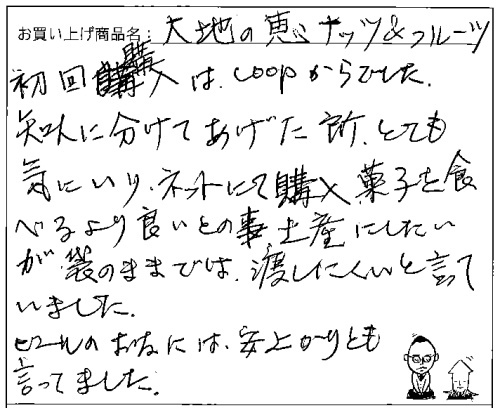 お買い上げ商品名： 大地の恵ナッツ&フルーツ
初回購入は、coopからでした。
知人に分けてあげた所、とても
気にいり、ネットにて購入、菓子を食
べるより良いとの事 土産にしたい
が、袋のままでは、渡しにくいと言って
いました。
ビールのおなには、安上がりとも
言ってました。